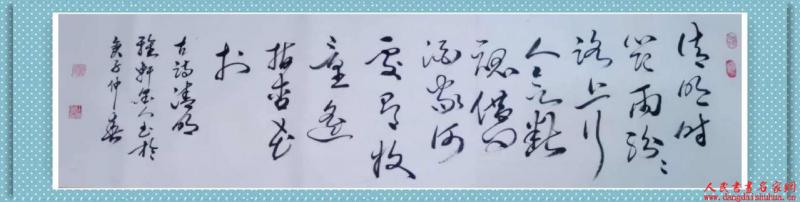 清明时
節雨紛〻
路上行
人欲斷
魂借问
酒家何
處有牧
童遥
指杏花
村
古詩清明
軒人书於
庚子仲春
人民書畫名家網
www.dangdaishuhua.cn